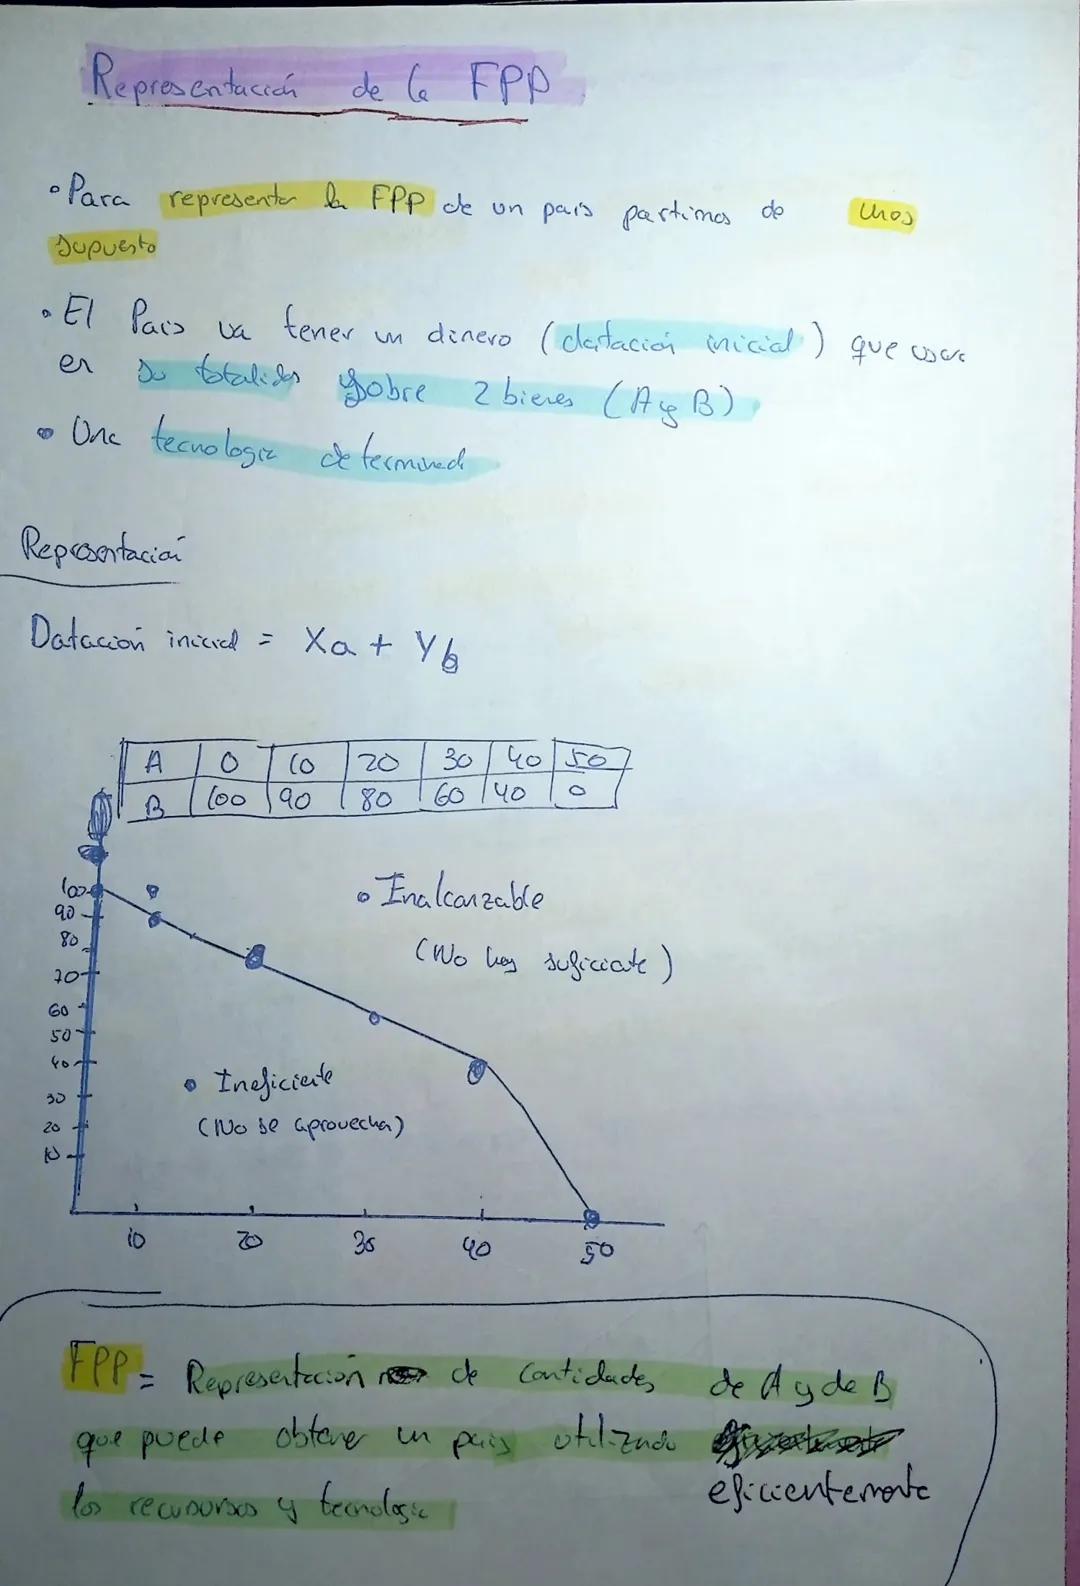 Representación de la FPP
• Para representar la FPP de un país partimos de unos
supuesto
• El País va tener un dinero (datación inicial) que usara
en su totalidas sobre 2 bienes (A y B)
• Una tecnologia determinada
Representación
Datación inicial = Xa + Yb
A 0 10 20 30 40 50
B 100 90 80 60 40 0
100
90
80
70
60
50
40
30
20
10
• Inalcanzable
(No hay suficiente)
• Ineficiente
(No se aprovecha)
10 20 30 40 50
FPP = Representación de cantidades de A y de B
que puede obtener un país utilizando
eficientemente
los recusursos y tecnologia